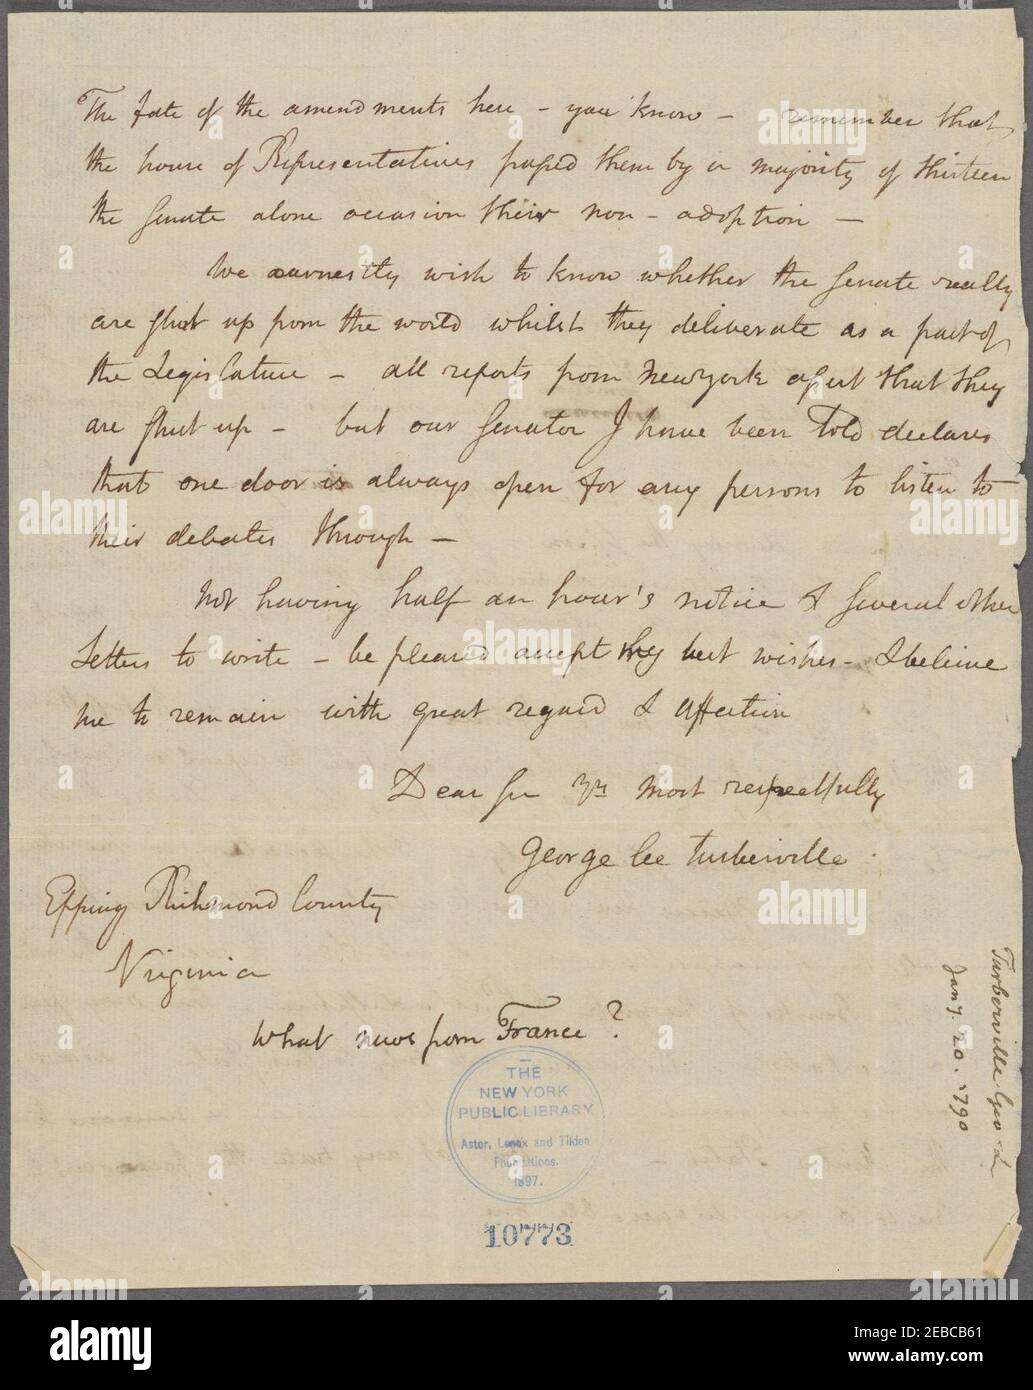 The fate of the amendments here - you know - remember that
the house of Representatives passed them by a majority of thirteen
the Senate alone occasion their non-adoption -
We earnestly wish to know whether the Senate really
are shut up from the world whilst they deliberate as a part of
the Legislature - all reports from Newyork assert that they
are shut up - but our Senator I have been Told declares
that one door is always open for any persons to listen to
their debates through -
Not having half an hour's notice & several other
Letters to write - be pleased accept my best wishes - & believe
me to remain with great regard & affection
Dear Sir Yrs most respectfully
George Lee Turberville
Epping Richmond County
Virginia
What news from France?
Turberville Geo. L
Jany. 20. 1790
THE
NEW YORK
PUBLIC LIBRARY
Astor, Lenox and Tilden
Foundations.
1897.
10773
alamy
Image ID: 2EBCB61
www.alamy.com